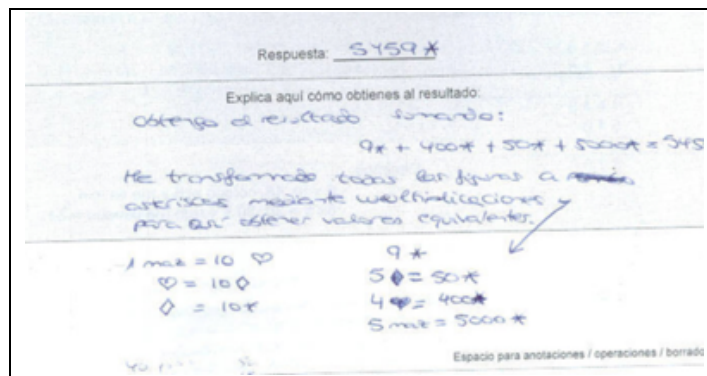 Respuesta: 5459 *
Explica aquí cómo obtienes al resultado:
Obtengo el resultado sumando:
9* + 400* + 50* + 5000* = 545
He transformado todas las figuras a
asteriscos mediante multiplicaciones
para así obtener valores equivalentes.
1 maz = 10 ♡
♡ = 10 ◊
◊ = 10 *
9 *
5 ♦ = 50 *
4 ♥ = 400 *
5 maz = 5000 *
Espacio para anotaciones / operaciones / borrado